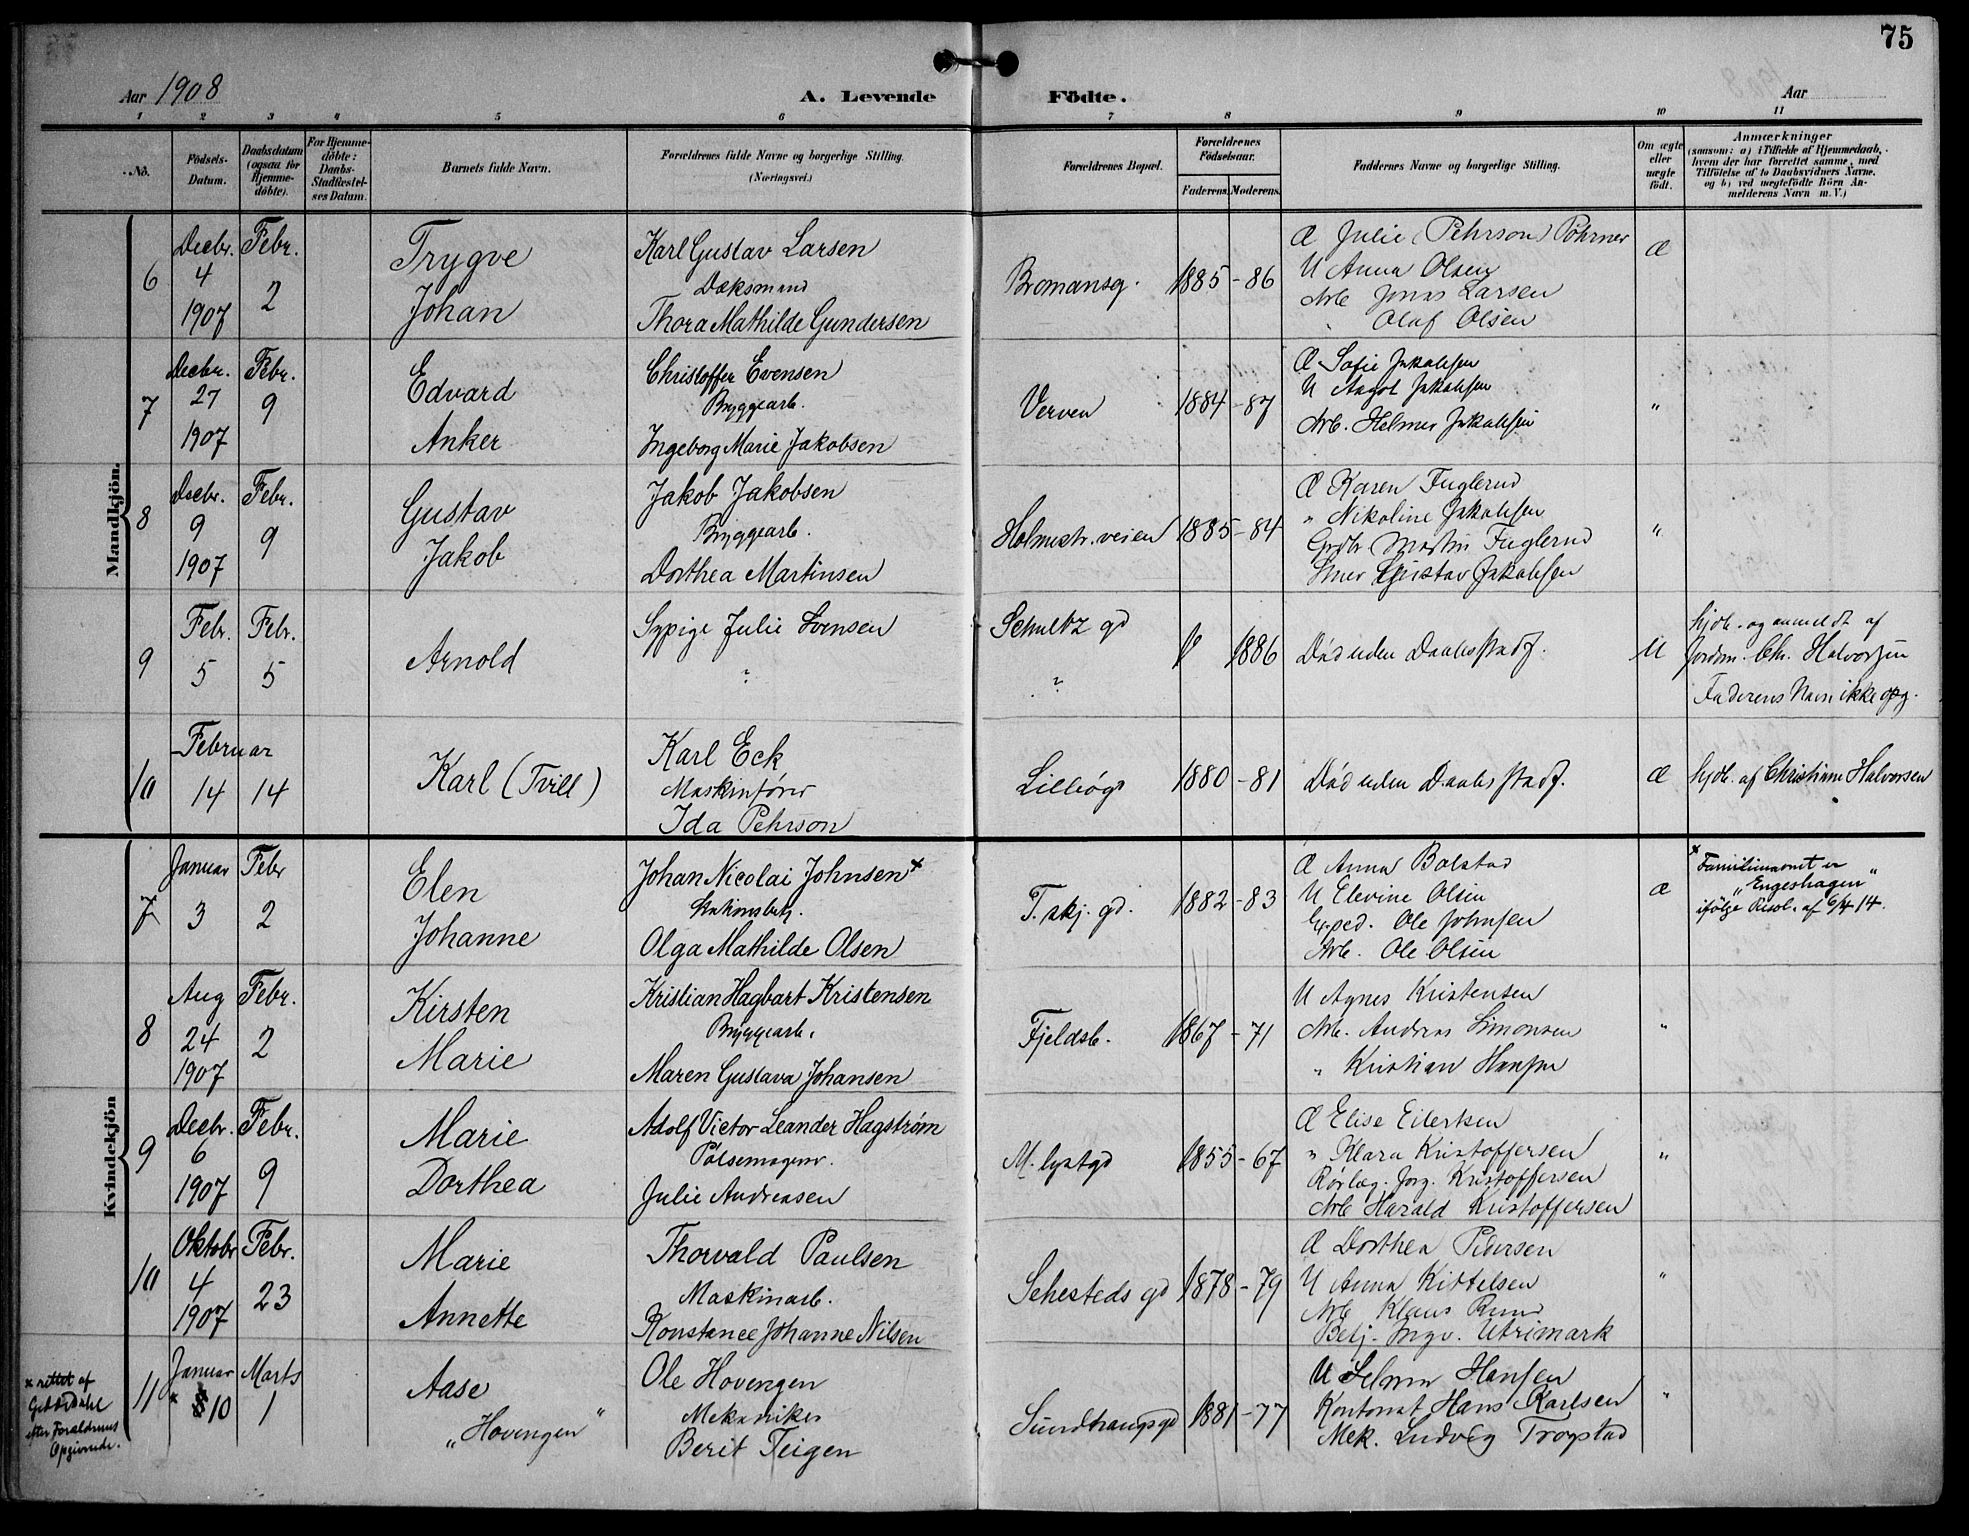 75
Aar 1908
A. Levende Födte.
Aar
1 2 3 4 5 6 7 8 9 10 11
No.
Födsels-Datum.
Daabsdatum (ogsaa for Hjemme-döbte).
For Hjemme-döbte: Daabs-Stadfæstel-ses Datum.
Barnets fulde Navn.
Forældrenes fulde Navne og borgerlige Stilling.
(Næringsvei.)
Forældrenes Bopæl.
Forældrenes Födselsaar.
Faderens. Moderens.
Faddernes Navne og borgerlige Stilling.
Om ægte eller uægte födt.
Anmærkninger
(saasom: a) i Tilfælde af Hjemmedaab, hvem der har forrettet samme, med Tilföielse af to Daabsvidners Navne. og b) ved uægtefödte Börn An-melderens Navn m. V.)
Mandkjön.
6
Decbr. 4 1907
Febr. 2
Trygve Johan
Karl Gustav Larsen
Dæksmand
Thora Mathilde Gundersen
Bromansg.
1885 - 86
Æ Julie (Pehrson) Pöhrner
U Anna Olsen
Arb Jonas Larsen
" Olaf Olsen
Æ
7
Decbr. 27 1907
Febr. 9
Edvard Anker
Christoffer Evensen
Bryggearb.
Ingeborg Marie Jakobsen
Verven
1884 - 87
Æ Sofie Jakobsen
U Aagot Jakobsen
Arb. Helmer Jakobsen
"
8
Decbr. 9 1907
Febr. 9
Gustav Jakob
Jakob Jakobsen
Bryggearb.
Dorthea Martinsen
Holmestr. veien
1885 - 84
Æ Karen Fuglerud
" Nikoline Jakobsen
Grdbr Martin Fuglerud
Gustav Jakobsen
"
9
Febr. 5
Febr. 5
Arnold
Sypige Julie Svensen
?
Schultz gd
?
1886
Død uden Daabsstadf.
U
hjdb. og anmeldt af
Jordm. Chr. Halvorsen
Faderens Navn ikke opg.
10
Februar
14 14
Karl (Tvill)
Karl Eck
Maskinfører
Ida Pehrson
Lilleögd
1880 - 81
Död uden Daabsstadf.
Æ
hjdb. af Christiane Halvorsen
Kvindekjön
7
Januar 3
Febr 2
Elen Johanne
Johan Nicolai Johnsen x
Stationsbetj.
Olga Mathilde Olsen
T. skj. gd.
1882 - 83
Æ Anna Bolstad
U Elevine Olsen
Exped. Ole Johnsen
Arb. Ole Olsen
Æ
x Familienavnet er
"Engeshagen"
ifölge Resol. af 6/4 14.
8
Aug 24 1907
Febr. 2
Kirsten Marie
Kristian Hagbart Kristensen
Bryggearb.
Maren Gustava Johansen
Fjeldsb.
1867 - 71
U Agnes Kristensen
Arb. Andreas Simonsen
" Kristian Hansen
"
9
Decbr. 6 1907
Febr. 9
Marie Dorthea
Adolf Victor Leander Hagström
Pölsemager.
Julie Andreasen
M. lystgd
1855 - 67
Æ Elise Eilertsen
" Klara Kristoffersen
Rörlæg. Jörg. Kristoffersen
Arb Harald Kristoffersen
"
10
Oktobr 4 1907
Febr. 23
Marie Annette
Thorvald Paulsen
Maskinarb.
Konstance Johanne Nilsen
Sehesteds gd
1878 - 79
Æ Dorthea Pedersen
U Anna Kittelsen
Arb Klaus Rund
Betj. Ingv. Utrimark
"
11
Januar x 10
Marts 1
Aase "Hovengen"
Ole Hovengen
Mekaniker
Berit Teigen
Sundhaugsgd
1881 - 77
U Selma Hansen
Kontorist Hans Karlsen
Mek. Ludvig Trogstad
"
x rettet af
efter Foreldrenes
Opgivende.